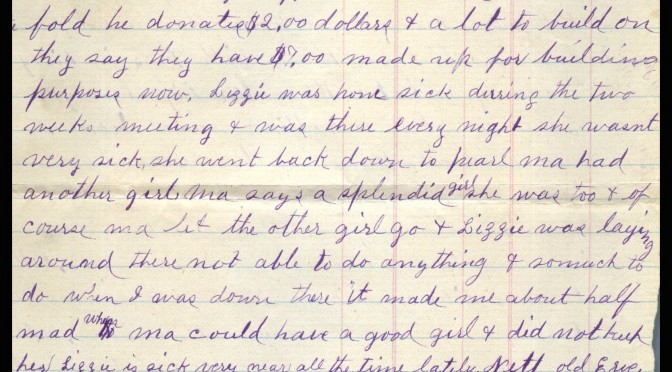 fold he donates $2,00 dollars & a lot to build on
they say they have $7,00 made up for building
purposes now, Lizzie was home sick during the two
weeks meeting & was there every night she wasnt
very sick, she went back down to pearl ma had
another girl, Ma says a splendid girl she was too & of
course ma let the other girl go & Lizzie was laying
around there not able to do anything & somuch to
do when I was down there it made me about half
mad when ma could have a good girl & did not keep
her Lizzie is sick very near all the time lately, Nett old